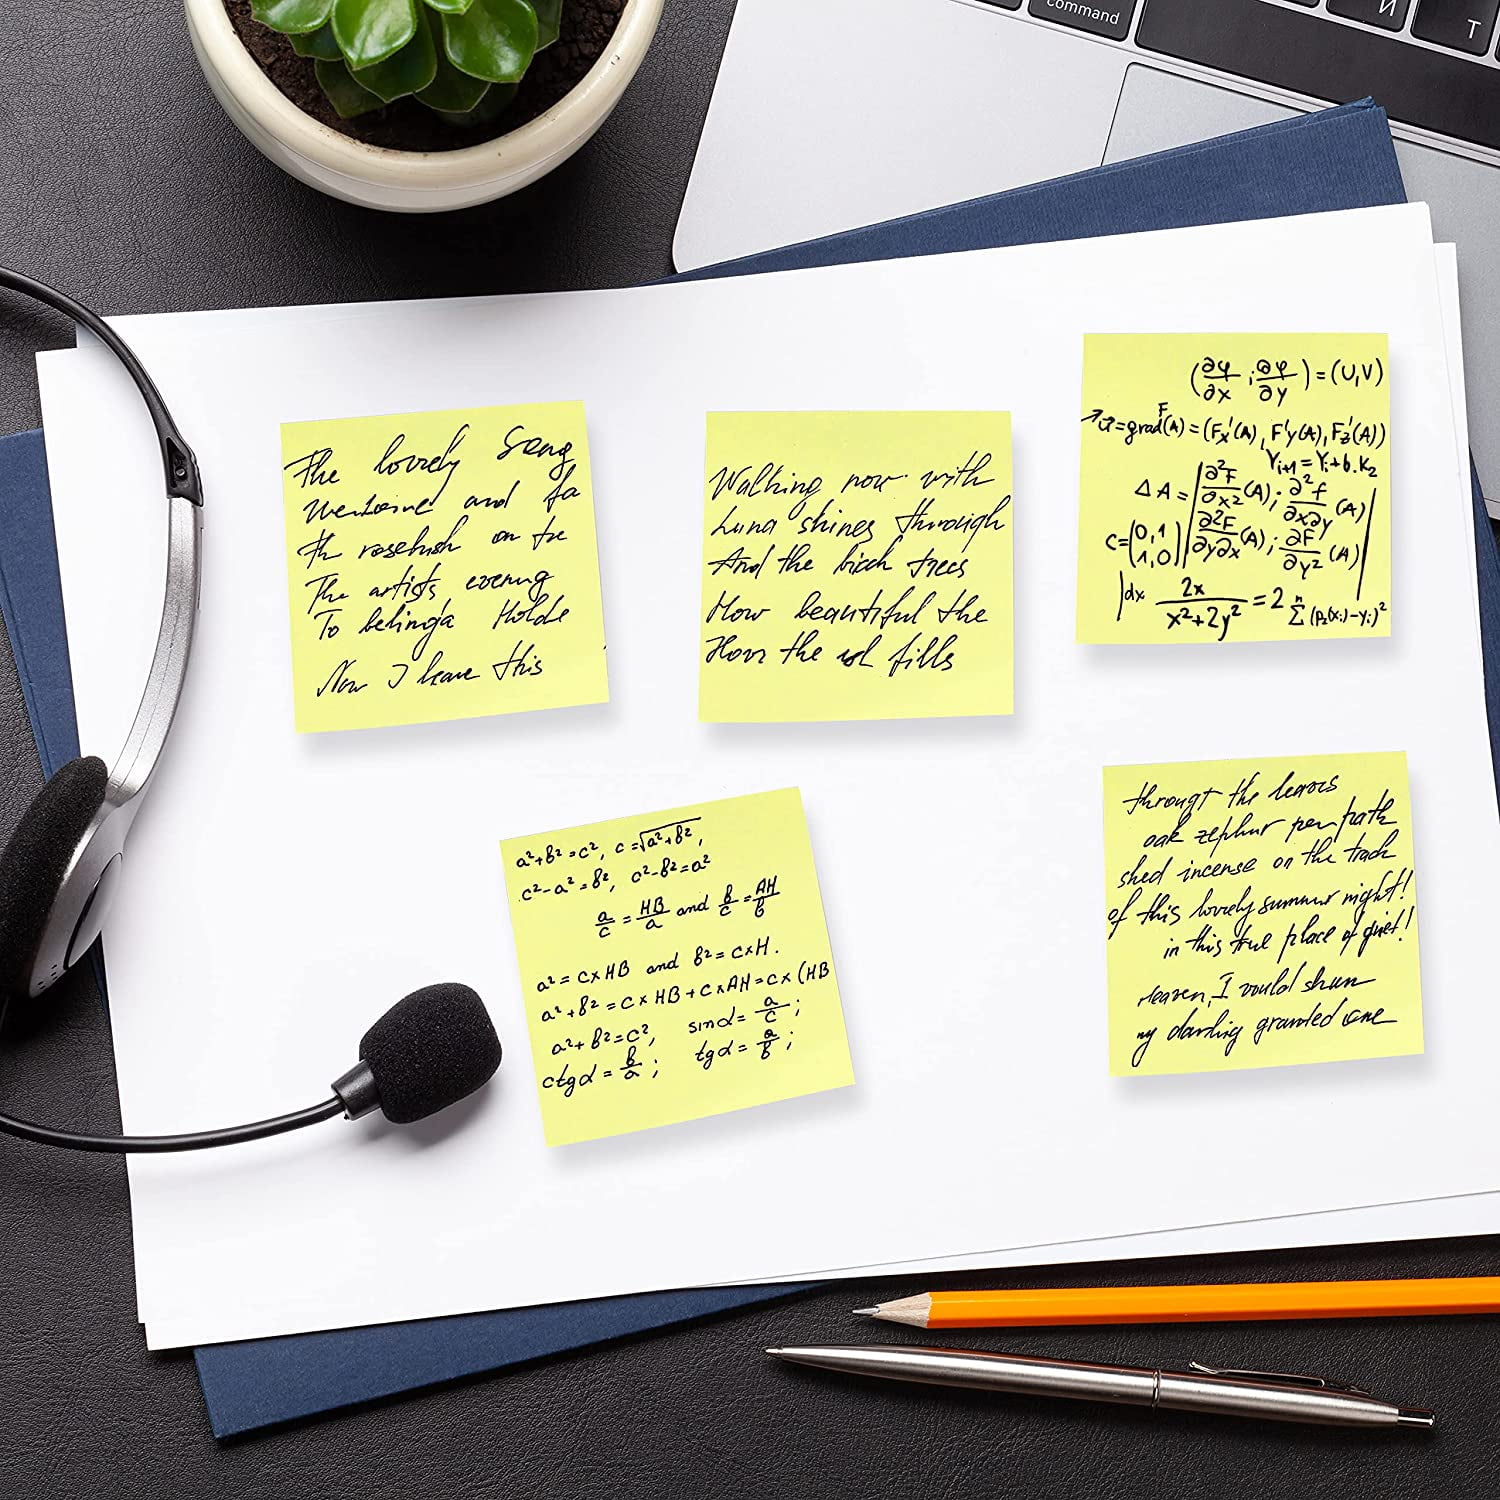 command
И
Т
The lovely Song
and fa
rosebush on the
The artists evening
To belinga Holde
Now I leave this
Walking now with
Luna shines through
And the birch trees
How beautiful the
How the fills
(∂φ/∂x ; ∂φ/∂y) = (U,V)
= grad F(A) = (Fx'(A), F'y(A), Fz'(A))
Yi+1 = Yi + b.K2
ΔA = |∂²F/∂x²(A); ∂²f/∂x∂y(A)
C = (0,1 1,0) ∂²F/∂y∂x(A); ∂F/∂y²(A)|
dx 2x/x²+2y² = 2 Σ (p2(xi)-yi)²
a²+b²=c², c=√a²+b²,
c²-a²=b², c²-b²=a²
a/c = HB/a and b/c = AH/b
a² = c×HB and b² = c×H.
a²+b² = c×HB+c×AH=c×(HB
a²+b²=c², sinα = a/c;
ctgα = b/a; tgα = a/b;
througt the leaves
oak zephur path
shed incense on the track
of this lovely summer night!
in this true place of quiet!
Heaven, I would shun
my darling granted one